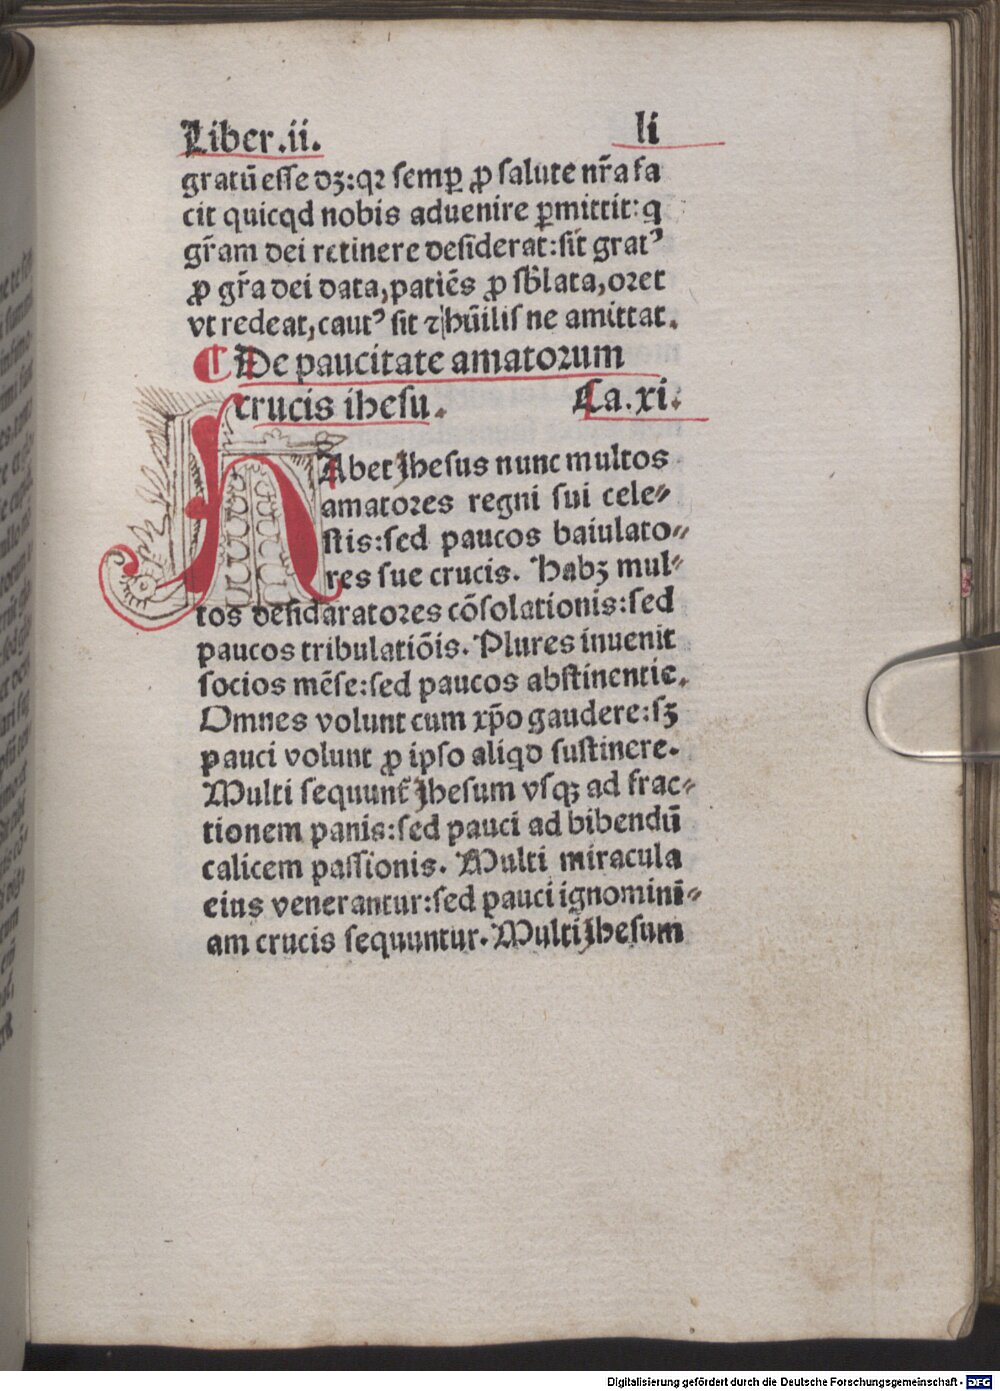 Liber .ii. li
gratū esse dꝫ: qꝛ semꝑ ꝓ salute nr̄a fa
cit quicqd nobis aduenire ꝑmittit: q
gr̄am dei retinere desiderat: sit gratꝰ
ꝓ gr̄a dei data, patiēs ꝓ sb̄lata, oret
vt redeat, cautꝰ sit ⁊ hūilis ne amittat.
¶ De paucitate amatorum
crucis ihesu. Ca. xi.
HAbet Jhesus nunc multos
amatores regni sui cele⸗
stis: sed paucos baiulato⸗
res sue crucis. Habꝫ mul⸗
tos desidaratores cōsolationis: sed
paucos tribulatiōis. Plures inuenit
socios mēse: sed paucos abstinentie.
Omnes volunt cum xp̄o gaudere: sꝫ
pauci volunt ꝓ ipso aliqd sustinere.
Multi sequunt̄ Jhesum vsqꝫ ad frac⸗
tionem panis: sed pauci ad bibendū
calicem passionis. Multi miracula
eius venerantur: sed pauci ignominī⸗
am crucis sequuntur. Multi Jhesum
Digitalisierung gefördert durch die Deutsche Forschungsgemeinschaft - DFG